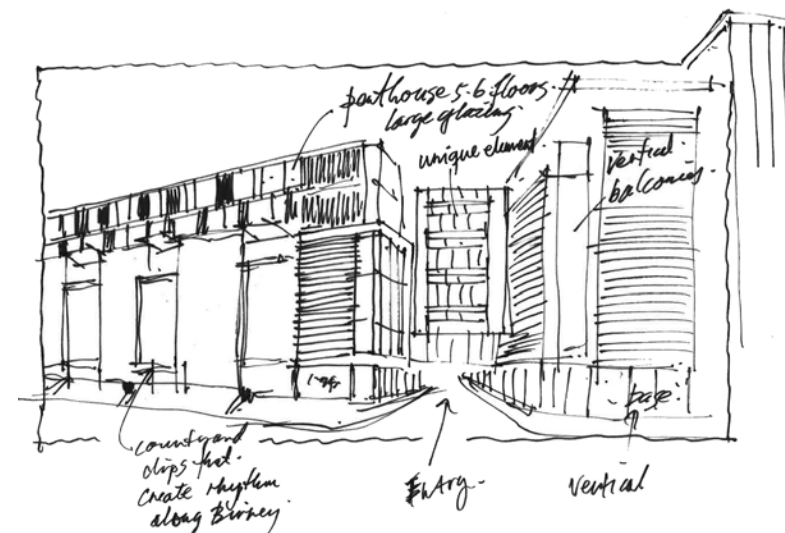 penthouse 5-6 floors.
large glazing.
unique element
vertical
balconies.
base.
courtyard
clips that.
create rhythm
along Birney.
Entry.
vertical